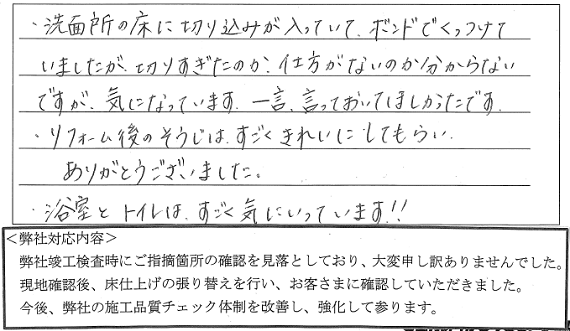 ・洗面所の床に切り込みが入っていて、ボンドでくっつけて
いましたが、切りすぎたのか、仕方がないのか分からない
ですが、気になっています。一言、言っておいてほしかったです。
・リフォーム後のそうじは、すごくきれいにしてもらい、
ありがとうございました。
・浴室とトイレは、すごく気にいっています!!
＜弊社対応内容＞
弊社竣工検査時にご指摘箇所の確認を見落としており、大変申し訳ありませんでした。
現地確認後、床仕上げの張り替えを行い、お客さまに確認していただきました。
今後、弊社の施工品質チェック体制を改善し、強化して参ります。